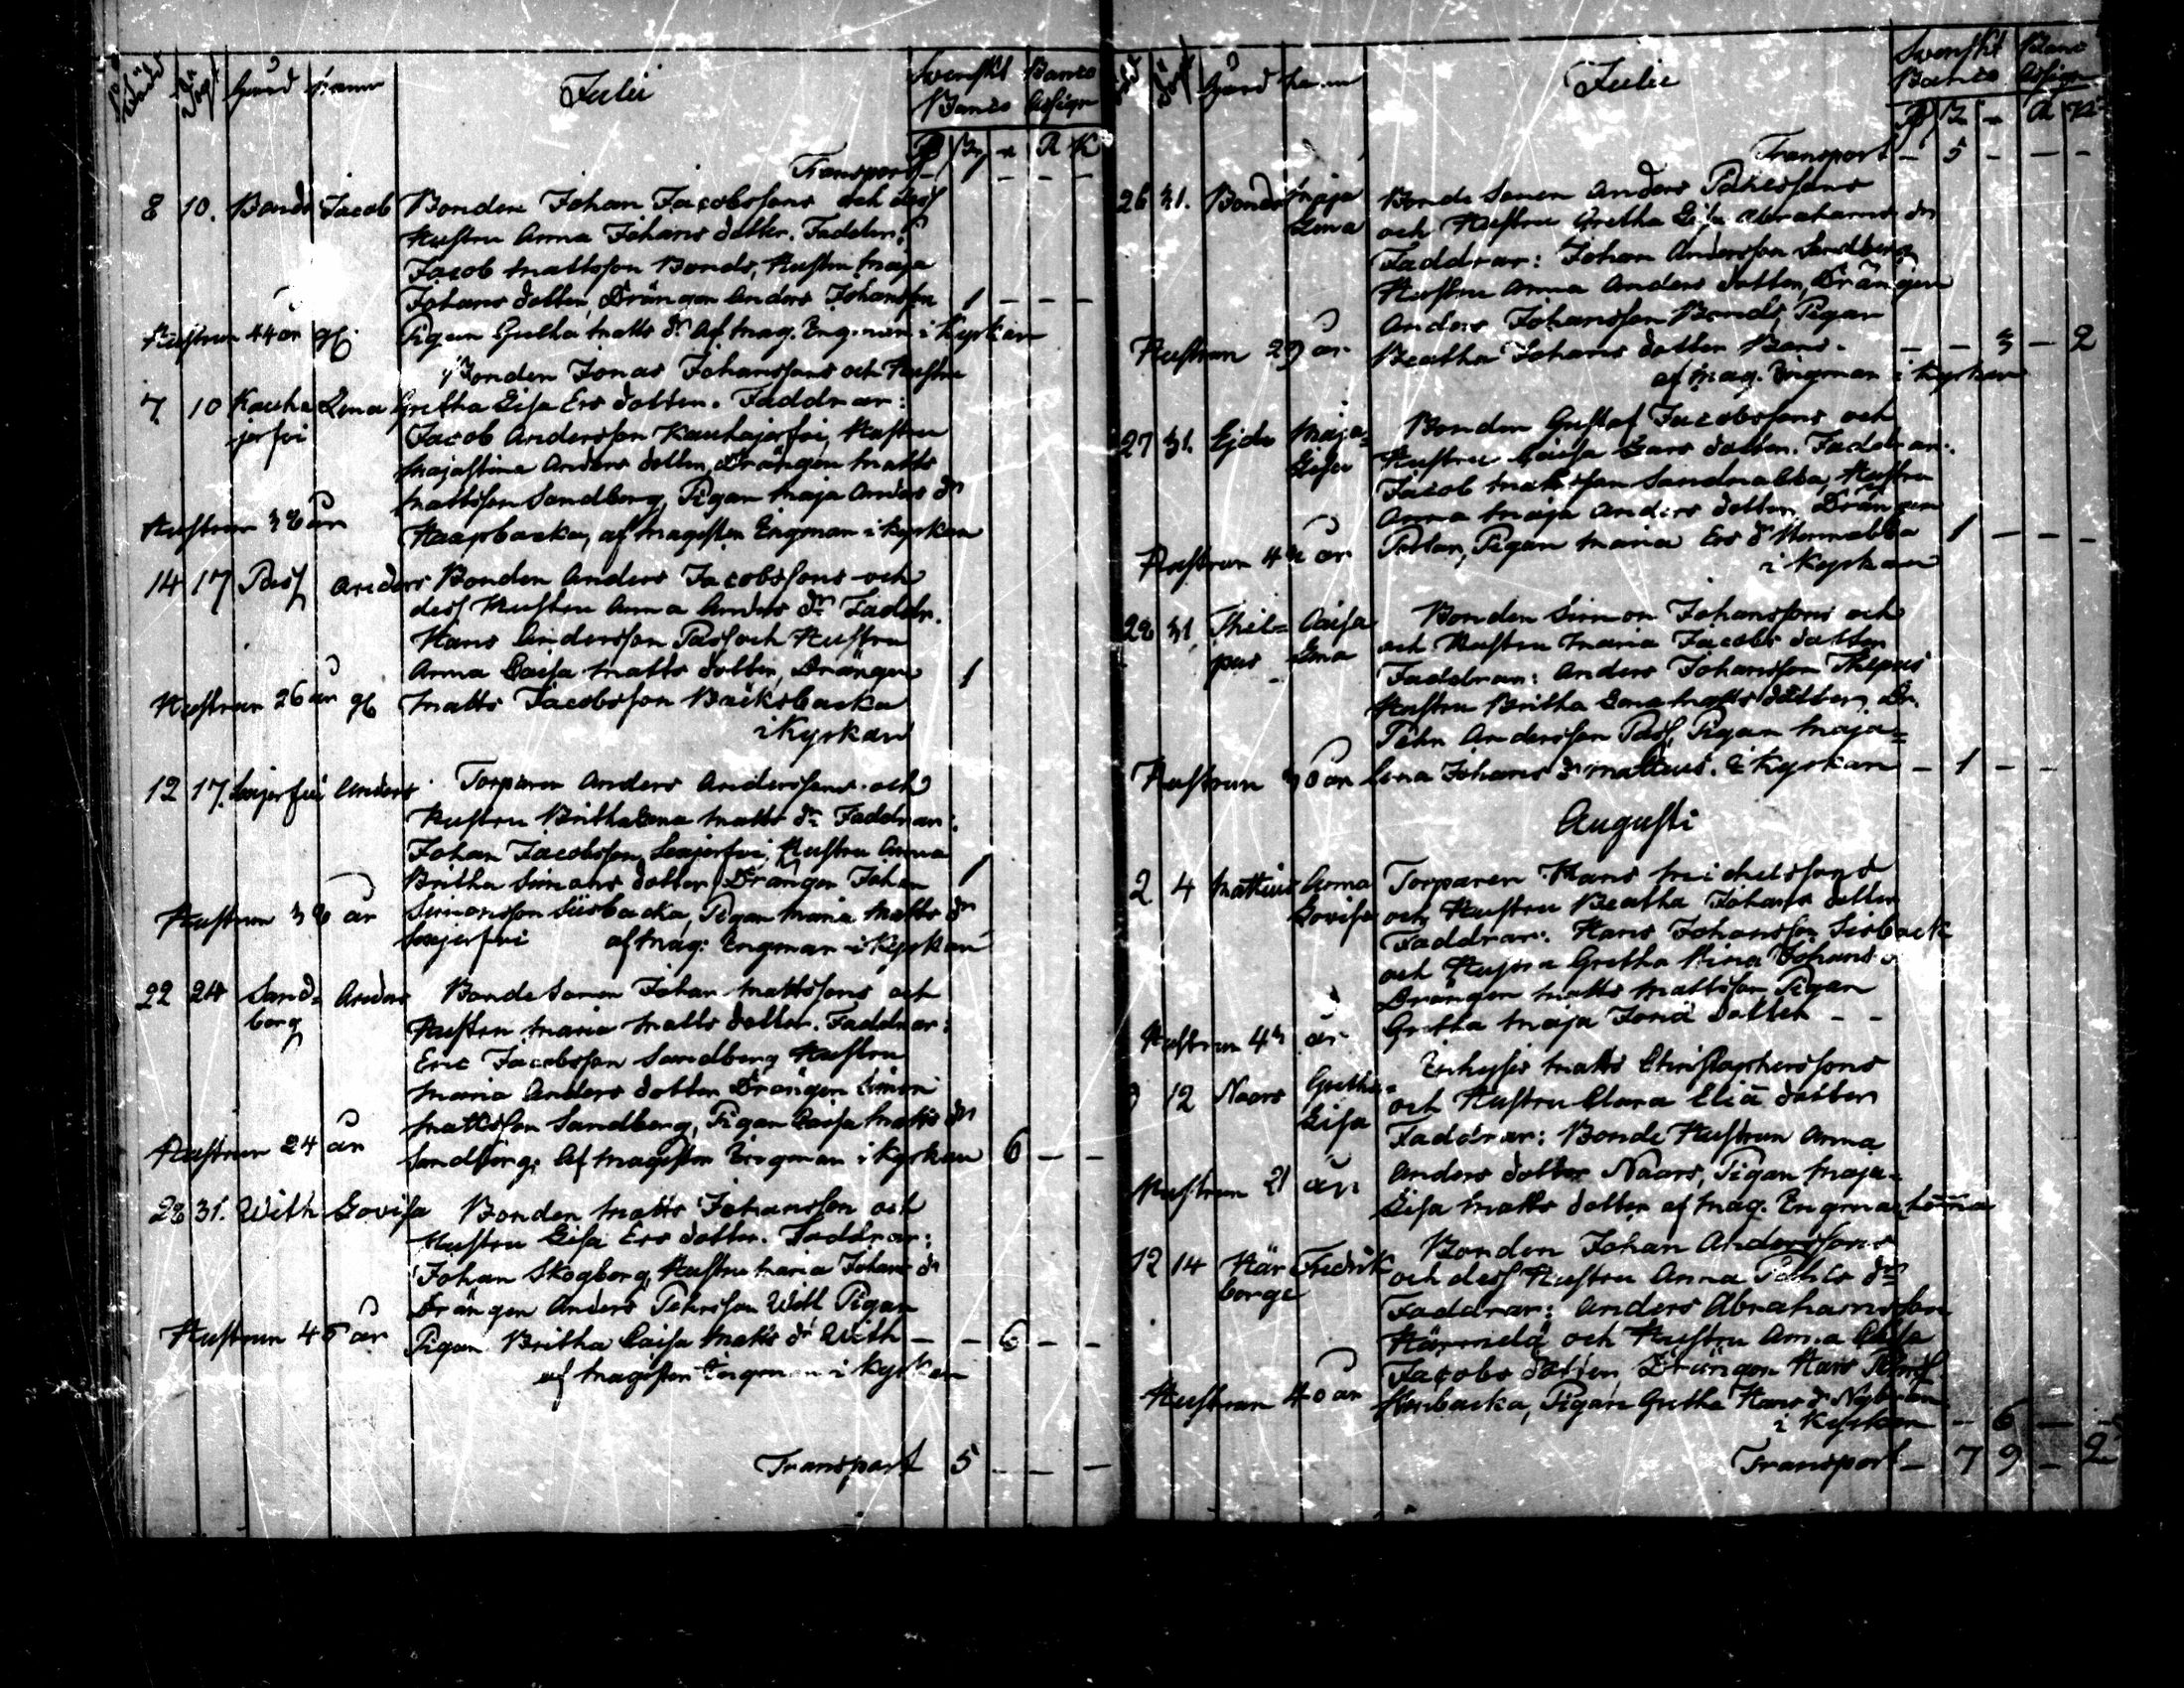 Född Döpt Gård Namn Julii Svenskt Banco Banco Assign
R β - R K
Transport - 1 - - -
8 10. Bonds Jacob Bonden Johan Jacobssons och dess
Hustru Anna Johans dotter. Faddrar:
Jacob Mattsson Bonds, Hustru Maja
Johans dotter, Drängen Anders Johansson 1 - - -
Hustrun 44 år Pigan Gretha Matts dr. Af Mag. Engman i Kyrkan
Bonden Jonas Johanssons och Hustru
7 10 Kauhajerfvi Lena Gretha Lisa Ers dotter. Faddrar:
Jacob Andersson Kauhajerfvi, Hustru
Majastina Anders dotter, Drängen Matts
Mattsson Sandberg, Pigan Maja Anders dr
Hustrun 38 år Haapbacka, af Magister Engman i Kyrkan
14 17 Pass Anders Bonden Anders Jacobssons och
dess Hustru Anna Anders dr Faddr.
Hans Andersson Pass och Hustru
Anna Caisa Matts dotter, Drängen 1
Hustrun 26 år Matts Jacobsson Bäcksbacka
i Kyrkan
12 17. Anders Torparen Anders Anderssons och
Hustru Britha Lena Matts dr Faddrar:
Johan Jacobsson, Hustru Anna
Britha Simons dotter, Drängen Johan 1
Hustrun 38 år Simonsson Siisbacka, Pigan Maria Matts dr
af Mag: Engman i Kyrkan
22 24 Sandberg Anders Bonde Sonen Johan Mattssons och
Hustru Maria Matts dotter. Faddrar:
Eric Jacobsson Sandberg Hustru
Maria Anders dotter Drängen Simon
Mattsson Sandberg, Pigan Caisa Matts dr
Hustrun 24 år Sandberg: Af Magister Engman i Kyrkan 6 - -
28 31. With Lovisa Bonden Matts Johansson och
Hustru Lisa Ers dotter. Faddrar:
Johan Skogberg, Hustru Maria Johans dr
Drängen Anders Pehrsson With Pigan
Hustrun 45 år Pigan Britha Caisa Matts dr With - - 6 - -
af Magister Engman i Kyrkan
Transport 5 - - -
Född Döpt Gård Namn Julii Svenskt Banco Banco Assign
R β - R K
Transport - 5 - - -
26 31. Bonds Maja Lena Bonde Sonen Anders Pehrssons
och Hustru Gretha Lisa Abrahams dr
Faddrar: Johan Andersson Sandberg
Hustru Anna Anders dotter, Drängen
Anders Johansson Bonds, Pigan
Hustrun 29 år Beatha Johans dotter - - 3 - 2
af Mag. Engman i Kyrkan
27 31. Maja Lisa Bonden Gustaf Jacobssons och
Hustru Caisa Lars dotter. Faddrar:
Jacob Mattsson Sandnabba, Hustru
Anna Maja Anders dotter, Drängen
Hustrun år Pigan Maria Ers dr 1 - - -
i Kyrkan
28 31 Philpus Caisa Lena Bonden Simon Johanssons och
och Hustru Maria Jacobs dotter
Faddrar: Anders Johansson
Hustru Britha Lena Matts dotter, Dr.
Pehr Andersson Pass, Pigan Maja-
Hustrun 30 år Lena Johans dr Mattius. i Kyrkan - 1 - -
Augusti
2 4 Mattius Anna Lovisa Torparen Hans Michelssons
och Hustru Beatha Johans dotter
Faddrar: Hans Johansson Sisback
och Hustru Gretha Johans dr
Drängen Matts Mattsson Pigan
Hustrun 43 år Gretha Maja Jonä dotter - -
Matts Christophersons
9 12 Naars Gretha- Lisa och Hustru Clara Eliä dotter
Faddrar: Bonde Hustrun Anna
Anders dotter Naars, Pigan Maja-
Hustrun 21 år Lisa Matts dotter af Mag. Engman hemma
12 14 Fredrik Bonden Johan Anderssons
och dess Hustru Anna Pehrs dr
Faddrar: Anders Abrahamsson
och Hustru Anna Caisa
Jacobs dotter, Drängen Hans
Hustrun 40 år Pigan Gretha Hans dr
i Kyrkan - 6 - -
Transport - 7 9 - 2